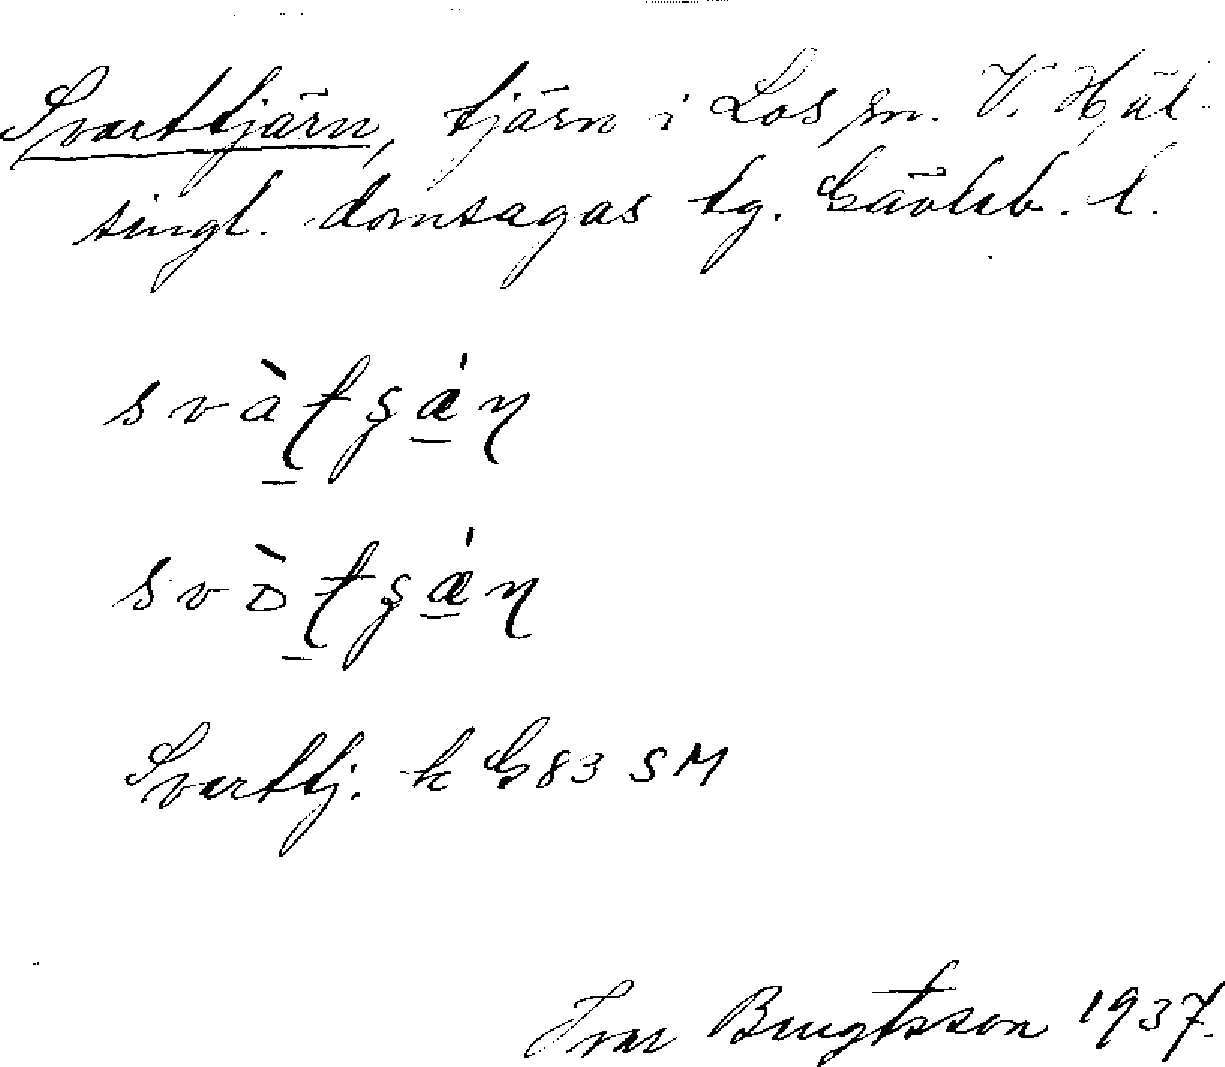 Svarttjärn, tjärn i Los sn. V. Häl-
singl. domsagas tg. Gävleb. l.
Svarttj. k G83 SM
Ivar Bengtsson 1937.